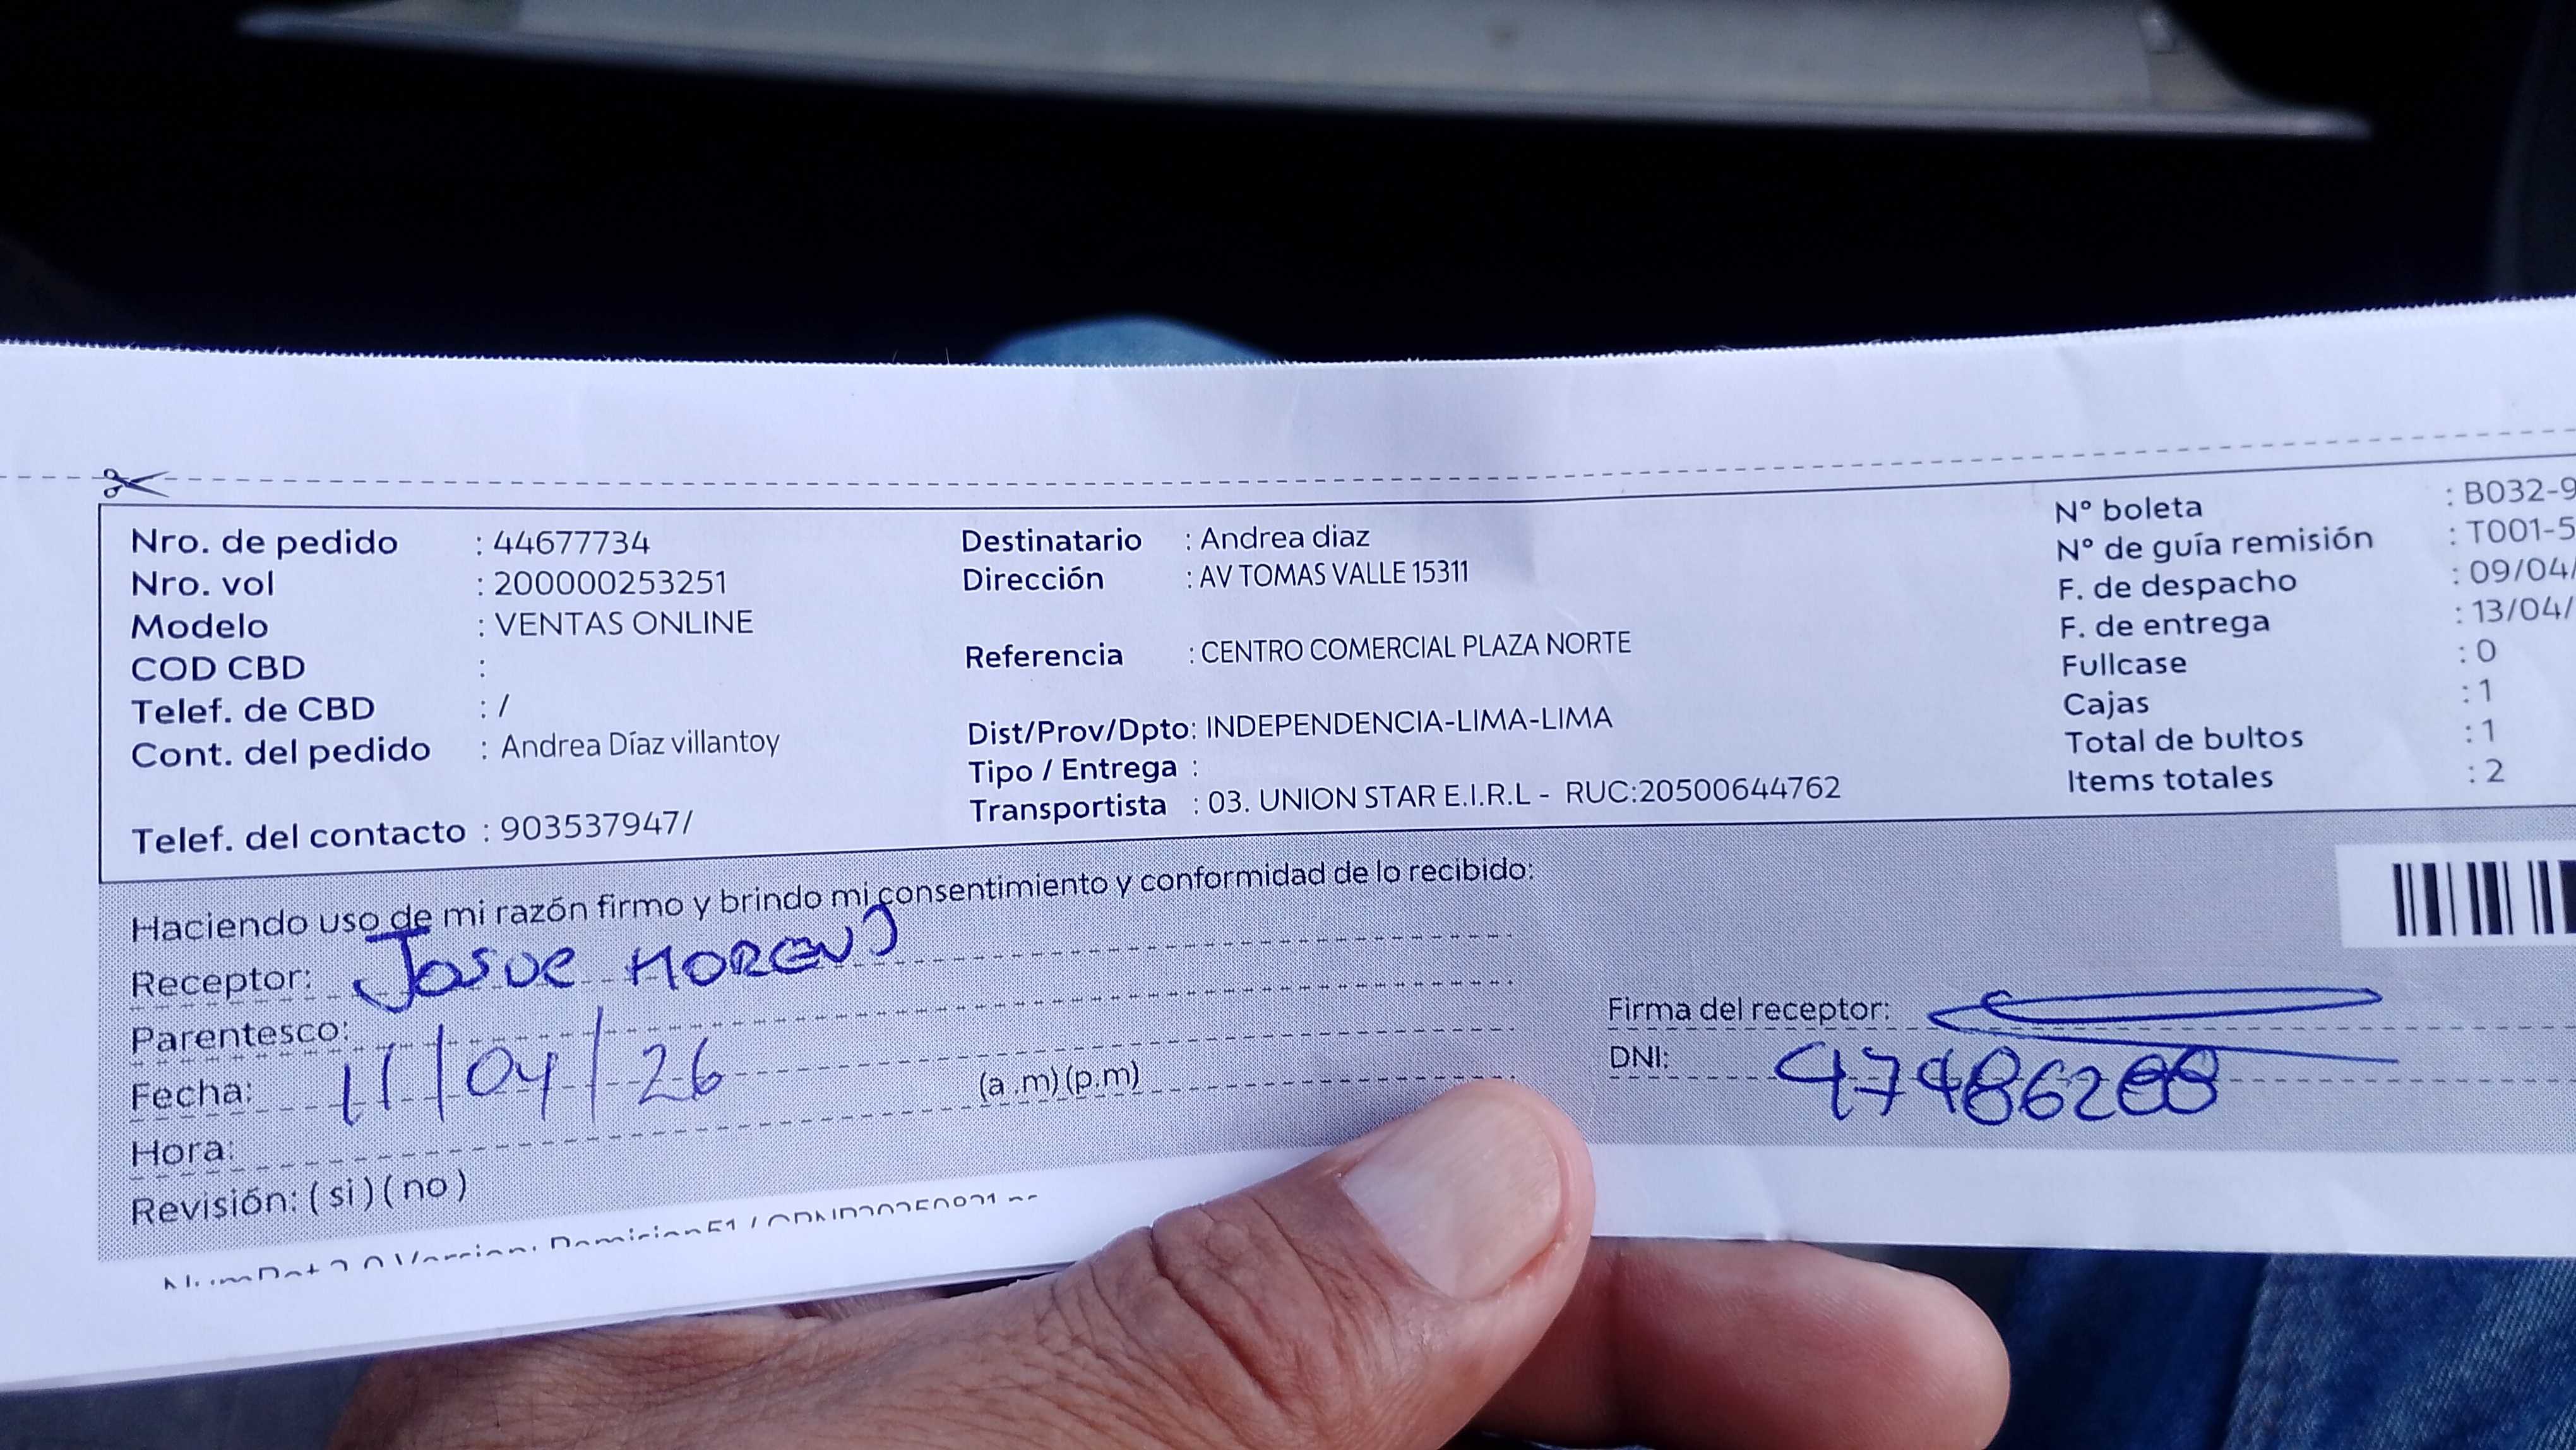 Nro. de pedido : 44677734
Nro. vol : 200000253251
Modelo : VENTAS ONLINE
COD CBD :
Telef. de CBD : /
Cont. del pedido : Andrea Díaz villantoy
Telef. del contacto : 903537947/
Destinatario : Andrea diaz
Dirección : AV TOMAS VALLE 15311
Referencia : CENTRO COMERCIAL PLAZA NORTE
Dist/Prov/Dpto: INDEPENDENCIA-LIMA-LIMA
Tipo / Entrega :
Transportista : 03. UNION STAR E.I.R.L - RUC:20500644762
N° boleta : B032-9
N° de guía remisión : T001-5
F. de despacho : 09/04/
F. de entrega : 13/04/
Fullcase : 0
Cajas : 1
Total de bultos : 1
Items totales : 2
Haciendo uso de mi razón firmo y brindo mi consentimiento y conformidad de lo recibido:
Receptor: Josue MORENO
Parentesco:
Fecha: 11/04/26
(a .m)(p.m)
Hora:
Revisión: ( si ) ( no )
Firma del receptor:
DNI: